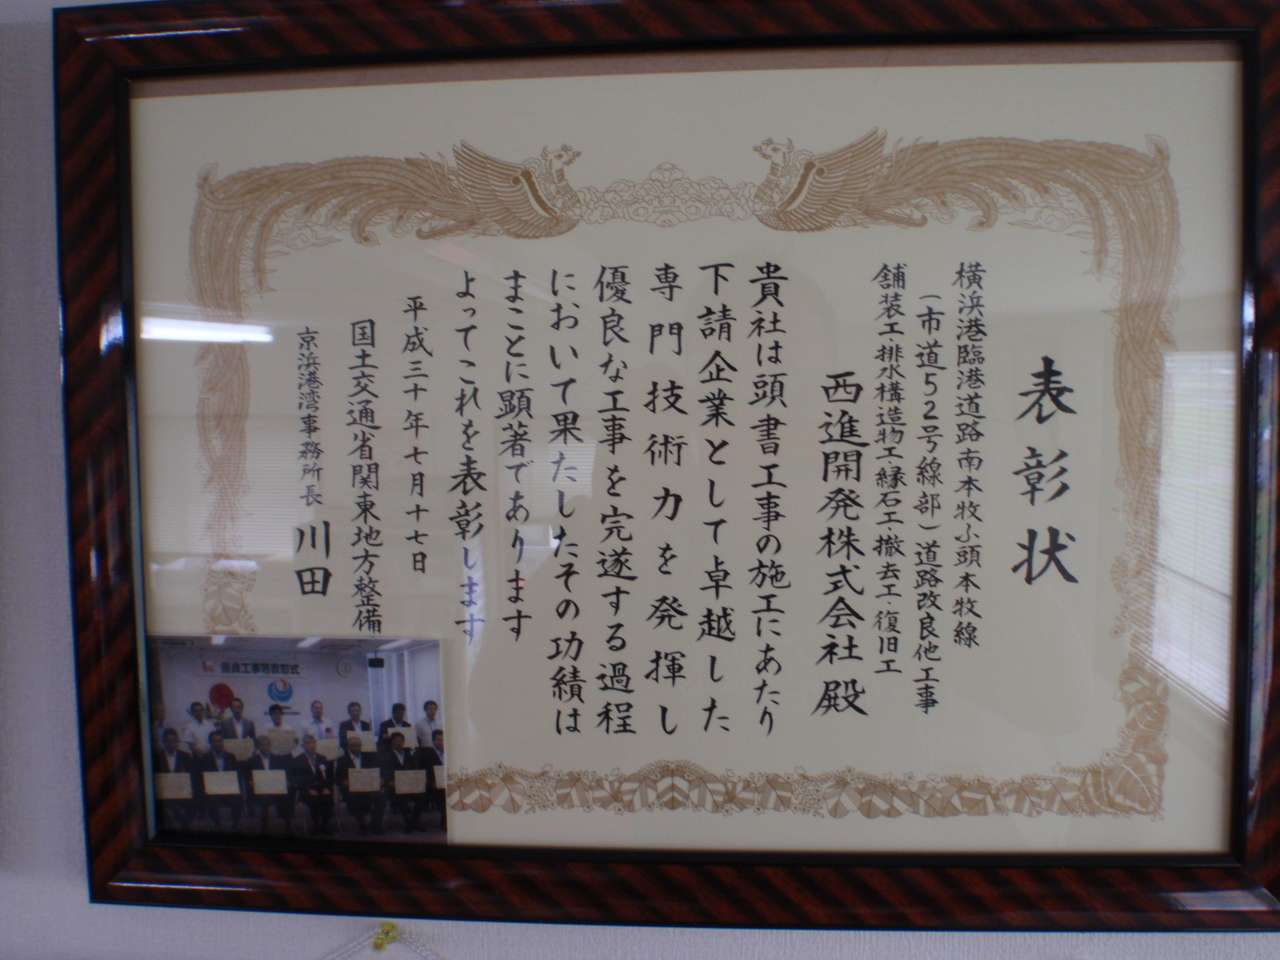 表彰状
横浜港臨港道路南本牧ふ頭本牧線
(市道52号線部)道路改良他工事
舗装工・排水構造物工・縁石工・撤去工・復旧工
西進開発株式会社殿
貴社は頭書工事の施工にあたり
下請企業として卓越した
専門技術力を発揮し
優良な工事を完遂する過程
において果たしたその功績は
まことに顕著であります
よってこれを表彰します
平成三十年七月十七日
国土交通省関東地方整備
京浜港湾事務所長 川田